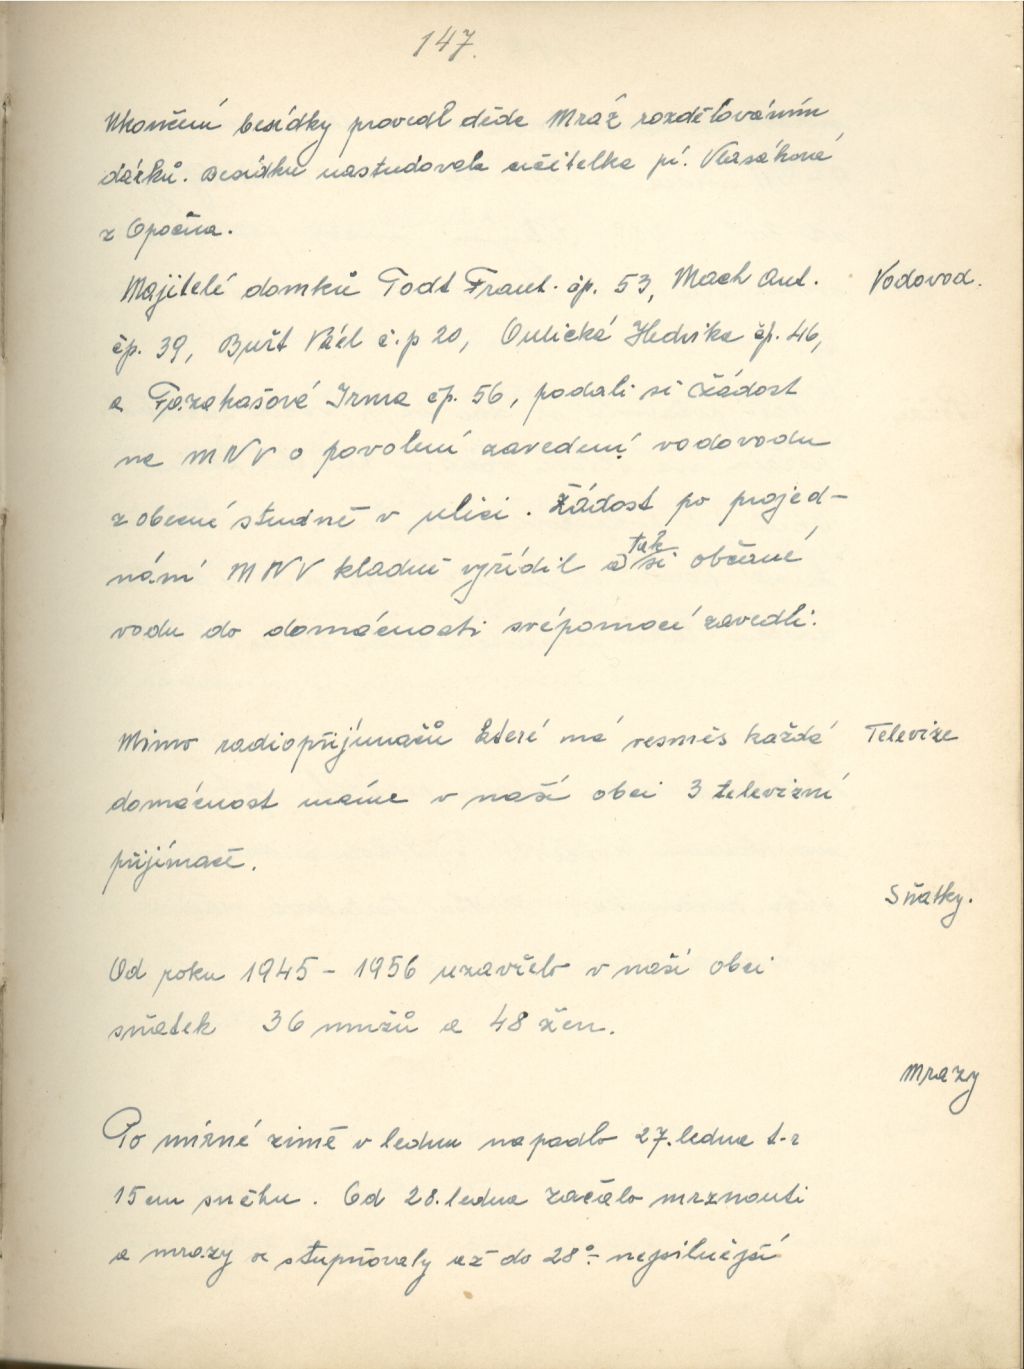 147.
Ukončení besídky provedl děde Mráz rozdělováním
dárků. Besídku nastudovala učitelka pí. Vlasáková
z Opočna.
Majitelé domků Todt Frant. čp. 53, Mach Ant. Vodovod.
čp. 39, Buřt č.p 20, Hedvika čp. 46,
a Irma čp. 56, podali si žádost
na MNV o povolení zavedení vodovodu
z obecné studně v ulici. Žádost po projed-
nání MNV kladně vyřídil a tak si občané
vodu do domácnosti svépomocí zavedli.
Mimo radiopřijímačů které má vesměs každá Televize
domácnost máme v naší obci 3 televizní
přijímače.
Sňatky.
Od roku 1945 - 1956 uzavřelo v naší obci
sňatek 36 mužů a 48 žen.
Mrazy
Po mírné zimě v lednu napadlo 27. ledna t.r
15 cm sněhu. Od 28. ledna začalo mrznouti
a mrazy se stupňovaly až do 28° - nejsilnější